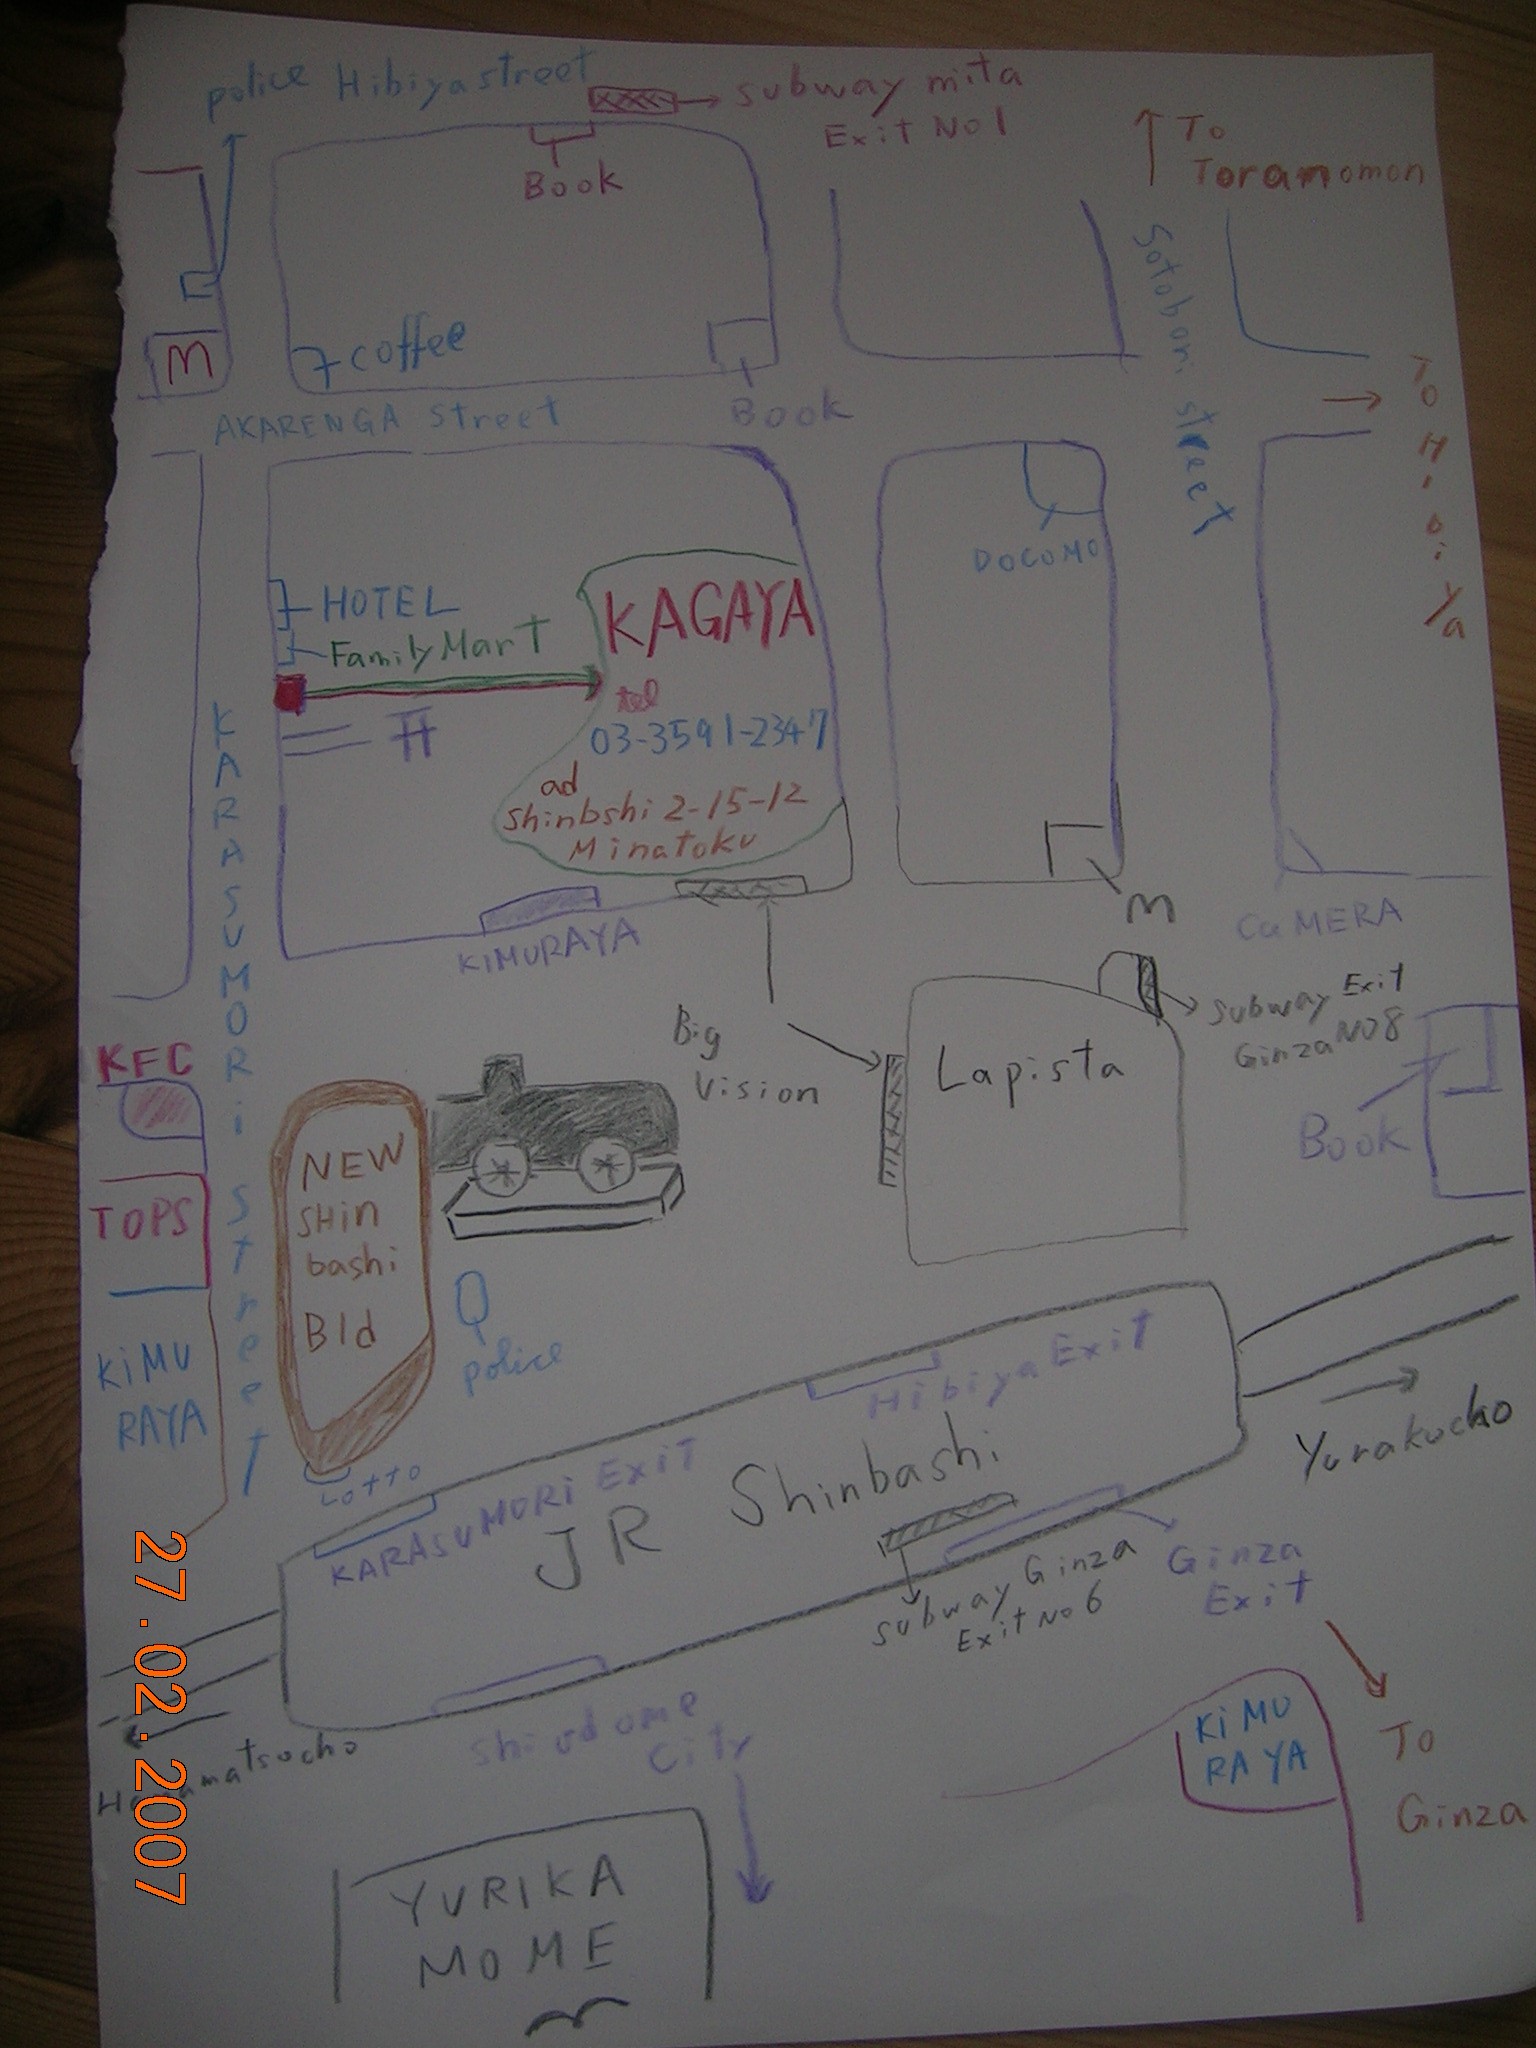 police Hibiya street
subway mita
Exit No 1
Book
To
Toranomon
Sotobori street
M
coffee
AKARENGA street
Book
To Hibiya
DOCOMO
HOTEL
Family Mart
KAGAYA
tel
03-3591-2347
ad
Shinbshi 2-15-12
Minatoku
KARASUMORi street
KIMURAYA
M
CaMERA
Big
Vision
Lapista
subway Exit
Ginza No 8
Book
KFC
TOPS
KiMU
RAYA
NEW
SHin
bashi
Bld
police
Lotto
KARASUMORi EXiT
Hibiya Exit
JR Shinbashi
Yurakucho
subway Ginza
Exit No 6
Ginza
Exit
Hamamatsucho
Shiodome
City
KiMU
RAYA
To
Ginza
YURIKA
MOME
27.02.2007